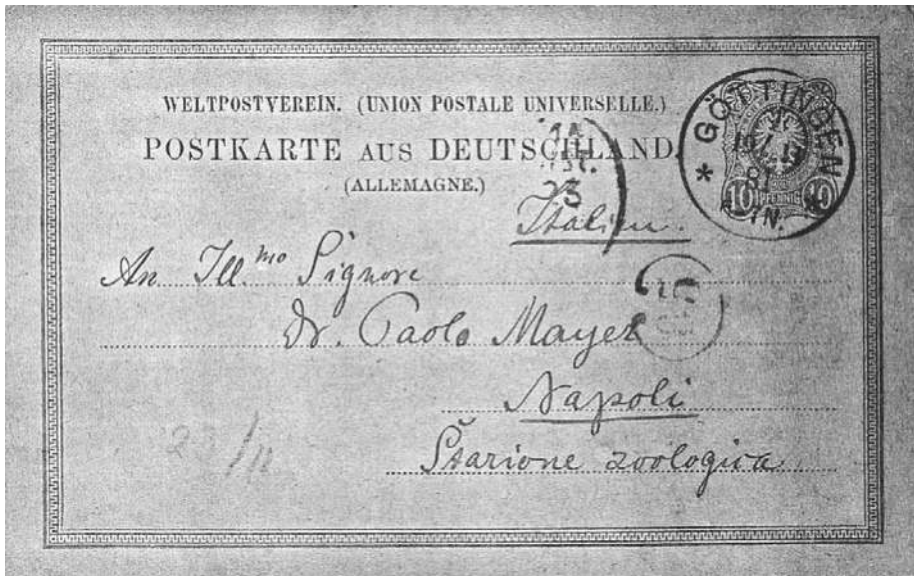 WELTPOSTVEREIN. (UNION POSTALE UNIVERSELLE.)
POSTKARTE AUS DEUTSCHLAND.
(ALLEMAGNE.)
GÖTTINGEN
81
10 PFENNIG 10
23
Italien.
An Ill.mo Signore
Dr. Paolo Mayer
Napoli
Stazione zoologica
23/11